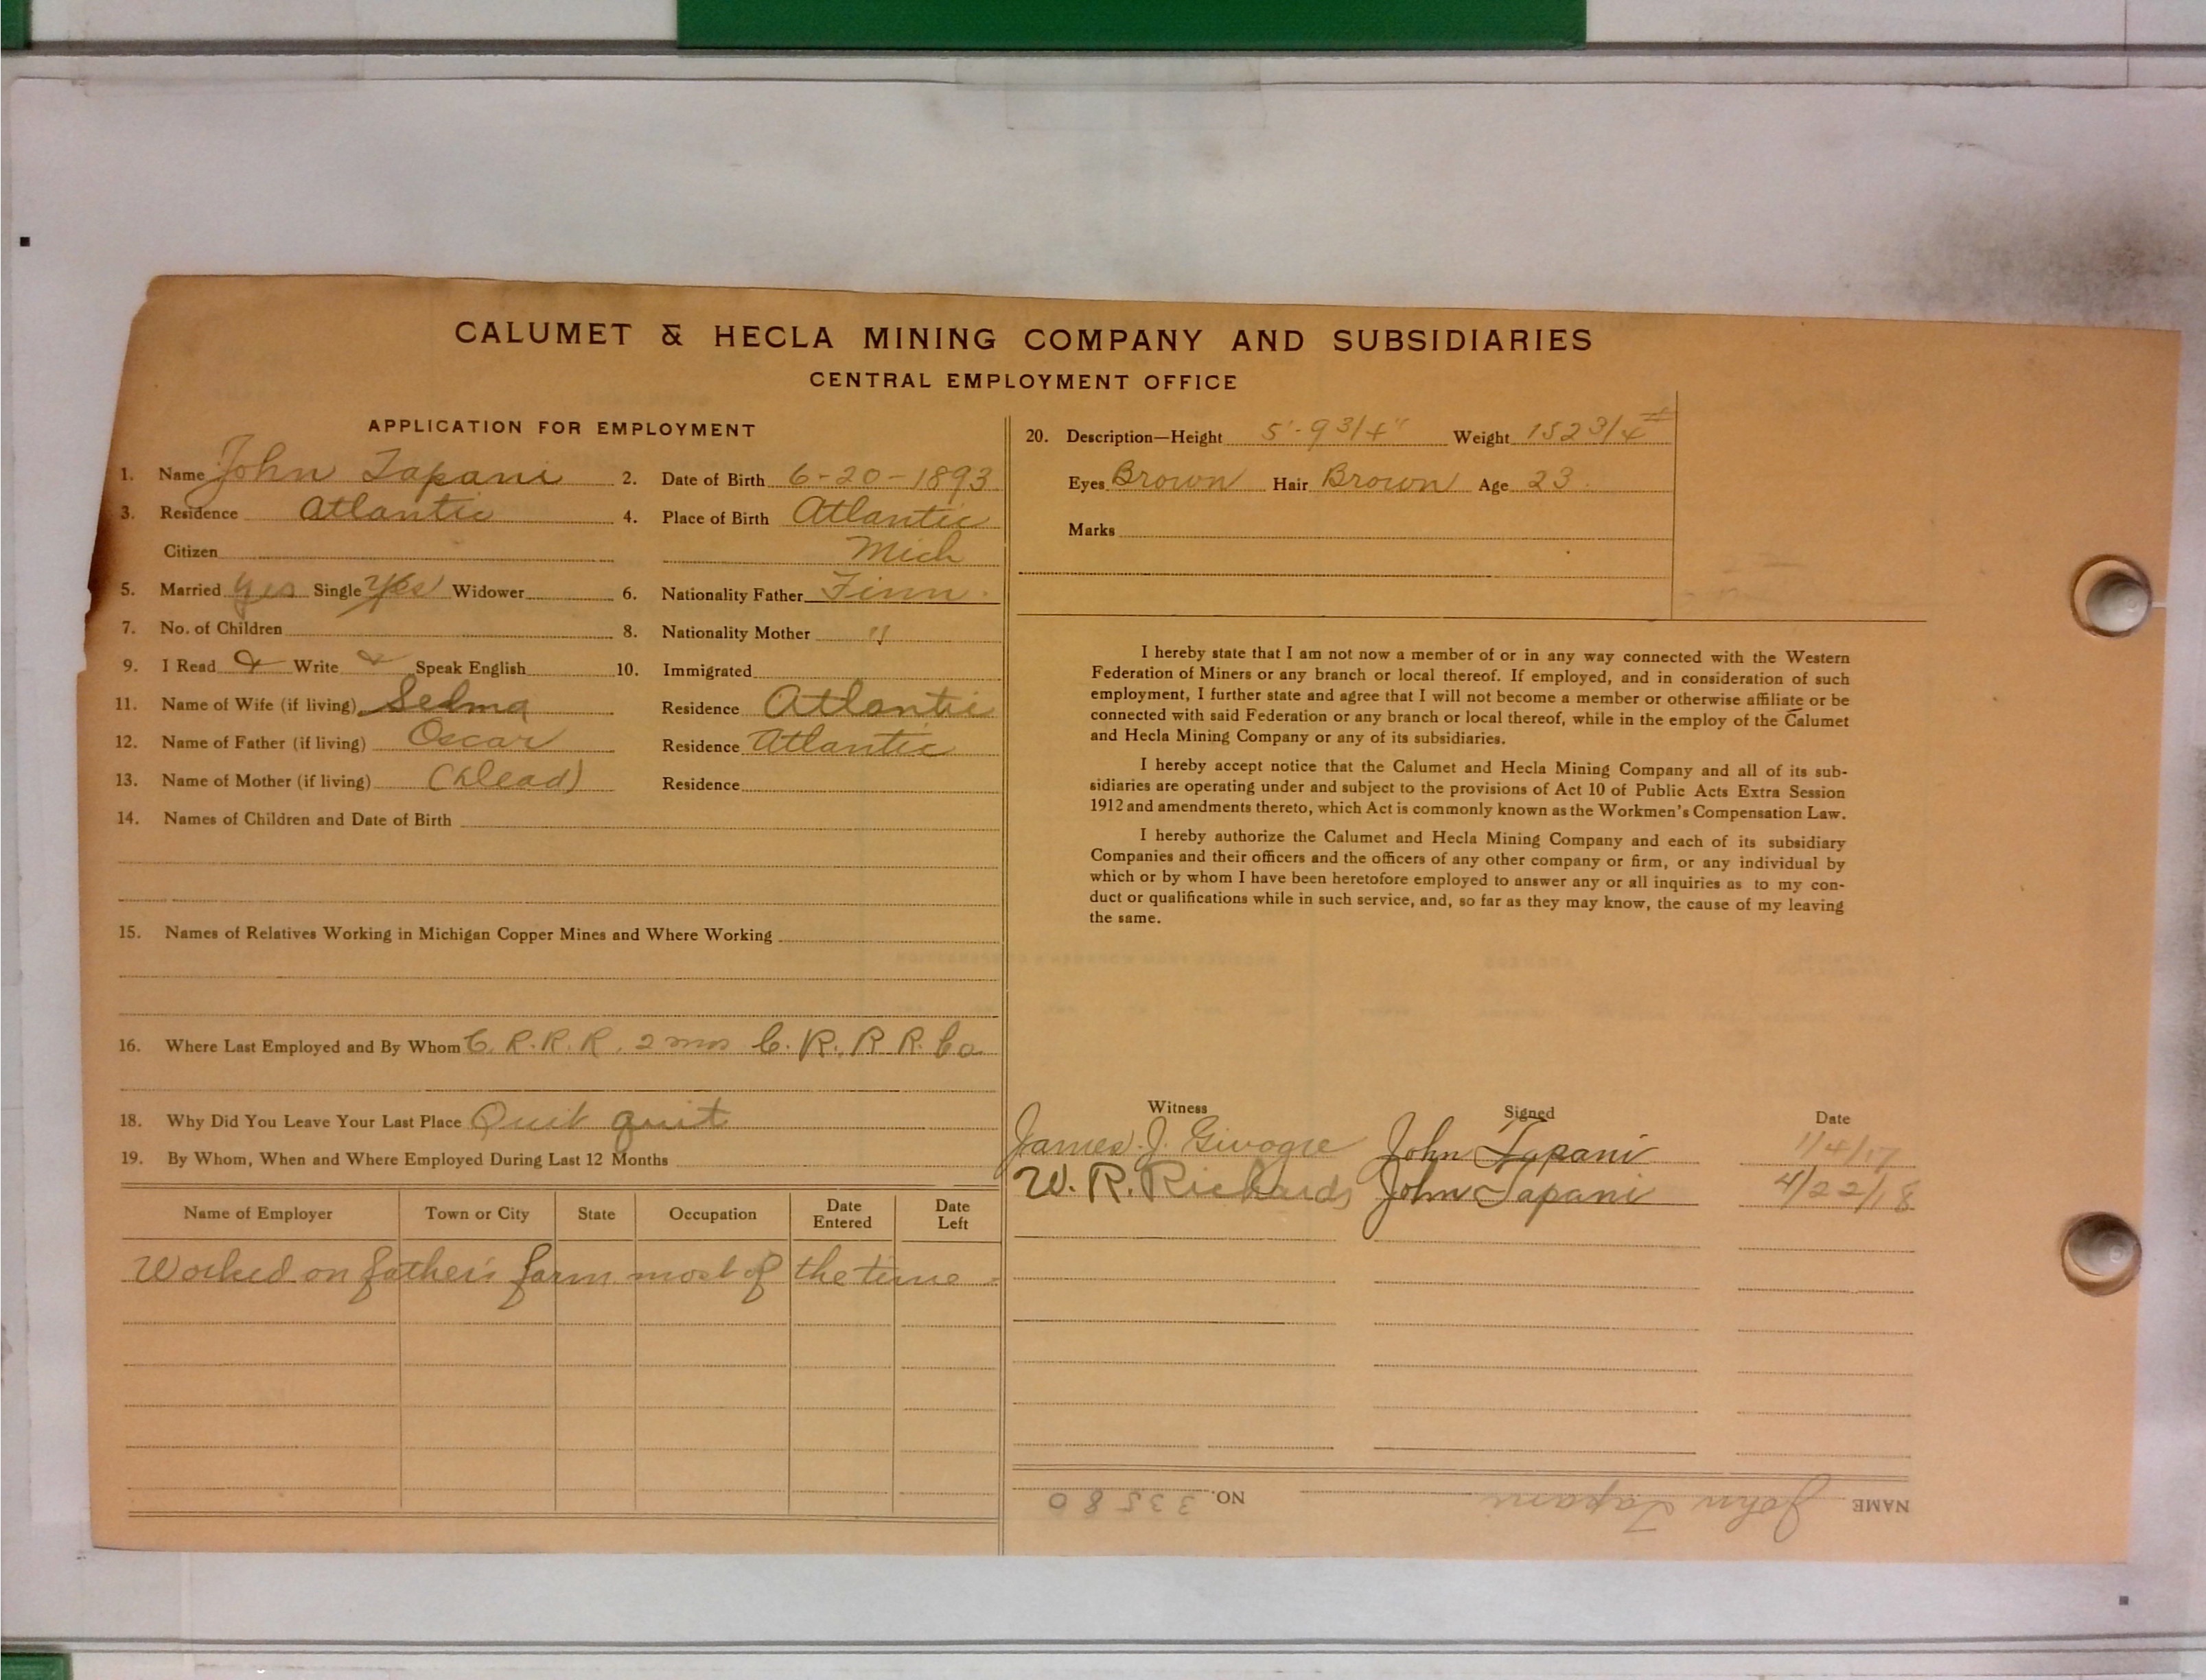 CALUMET & HECLA MINING COMPANY AND SUBSIDIARIES
CENTRAL EMPLOYMENT OFFICE
APPLICATION FOR EMPLOYMENT
1. Name John Tapani 2. Date of Birth 6-20-1893
3. Residence Atlantic 4. Place of Birth Atlantic
Citizen Mich
5. Married yes Single yes Widower 6. Nationality Father Finn.
7. No. of Children 8. Nationality Mother "
9. I Read & Write & Speak English 10. Immigrated
11. Name of Wife (if living) Selma Residence Atlantic
12. Name of Father (if living) Oscar Residence Atlantic
13. Name of Mother (if living) (Dead) Residence
14. Names of Children and Date of Birth
15. Names of Relatives Working in Michigan Copper Mines and Where Working
16. Where Last Employed and By Whom C. R. R. R. 2 mos C. R. R. R. Co
18. Why Did You Leave Your Last Place Quit quit
19. By Whom, When and Where Employed During Last 12 Months
Name of Employer Town or City State Occupation Date Entered Date Left
Worked on father's farm most of the time.
20. Description—Height 5'-9 3/4" Weight 152 3/4 #
Eyes Brown Hair Brown Age 23.
Marks
I hereby state that I am not now a member of or in any way connected with the Western
Federation of Miners or any branch or local thereof. If employed, and in consideration of such
employment, I further state and agree that I will not become a member or otherwise affiliate or be
connected with said Federation or any branch or local thereof, while in the employ of the Calumet
and Hecla Mining Company or any of its subsidiaries.
I hereby accept notice that the Calumet and Hecla Mining Company and all of its sub-
sidiaries are operating under and subject to the provisions of Act 10 of Public Acts Extra Session
1912 and amendments thereto, which Act is commonly known as the Workmen's Compensation Law.
I hereby authorize the Calumet and Hecla Mining Company and each of its subsidiary
Companies and their officers and the officers of any other company or firm, or any individual by
which or by whom I have been heretofore employed to answer any or all inquiries as to my con-
duct or qualifications while in such service, and, so far as they may know, the cause of my leaving
the same.
Witness Signed Date
James J. John Tapani 1/4/17
W. R. Richards John Tapani 4/22/18
NAME John Tapani NO. 33580